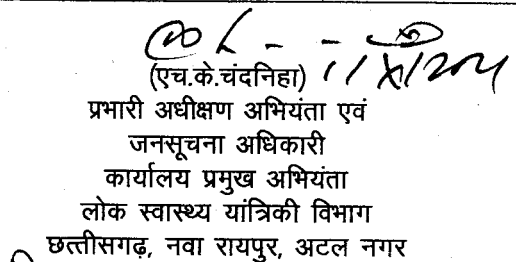 (एच.के.चंदनिहा)
प्रभारी अधीक्षण अभियंता एवं
जनसूचना अधिकारी
कार्यालय प्रमुख अभियंता
लोक स्वास्थ्य यांत्रिकी विभाग
छत्तीसगढ़, नवा रायपुर, अटल नगर